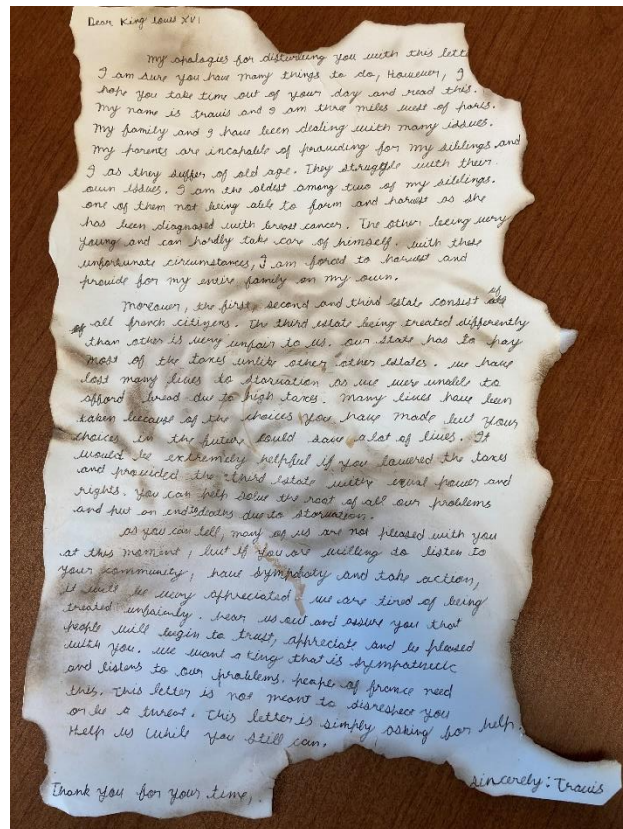 Dear King Louis XVI
My apologies for disturbing you with this lette
I am sure you have many things to do, However, I
hope you take time out of your day and read this.
My name is Travis and I am three miles west of paris.
My family and I have been dealing with many issues.
My parents are incapable of providing for my siblings and
I as they suffer of old age. They struggle with their
own issues. I am the oldest among two of my siblings.
one of them not being able to farm and harvest as she
has been diagnosed with breast cancer. The other being very
young and can hardly take care of himself. with these
unfortunate circumstances, I am forced to harvest and
provide for my entire family on my own.
Moreover, the first, second and third estate consist of
of all french citizens. The third estate being treated differently
than other is very unfair to us. our state has to pay
most of the taxes unlike other other estates. we have
lost many lives to starvation as we were unable to
afford bread due to high taxes. Many lives have been
taken because of the choices you have made but your
choices in the future could save a lot of lives. It
would be extremely helpful if you lowered the taxes
and provided the third estate with equal power and
rights. You can help solve the root of all our problems
and put an end deaths due to starvation.
as you can tell, many of us are not pleased with you
at this moment, but if you are willing to listen to
your community, have sympathy and take action,
it will be very appreciated. we are tired of being
treated unfairly. hear us out and assure you that
people will begin to trust, appreciate and be pleased
with you. we want a king that is sympatheick
and listens to our problems. peaper of france need
this. This letter is not meant to disrespect you
or be a threat. This letter is simply asking for help.
Help us while you still can.
Thank you for your time,
sincerely: Travis